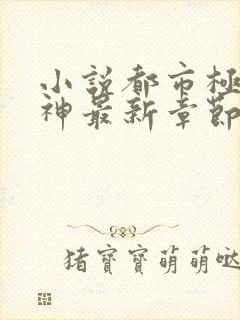 小說都市極
神最新章節
猪寶寶萌萌噠